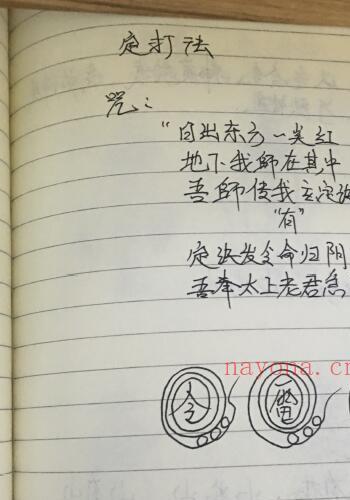 定打法
咒:
"日出东方一点红
地下我師在其中
吾師传我立定
"有"
定法发令命归阴
吾奉太上老君急
nayona.cn
令 雷